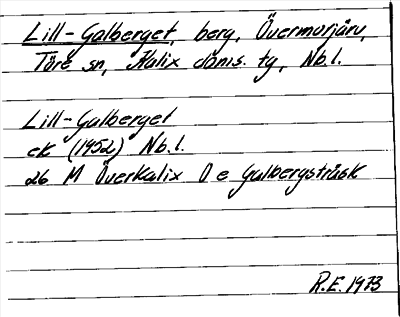 Lill-Galberget, berg, Övermorjärv,
Töre sn, Kalix doms. tg, Nb.l.
Lill-Galberget
ek (1952) Nb.l.
26 M Överkalix O e Galbergsträsk
R.E. 1973